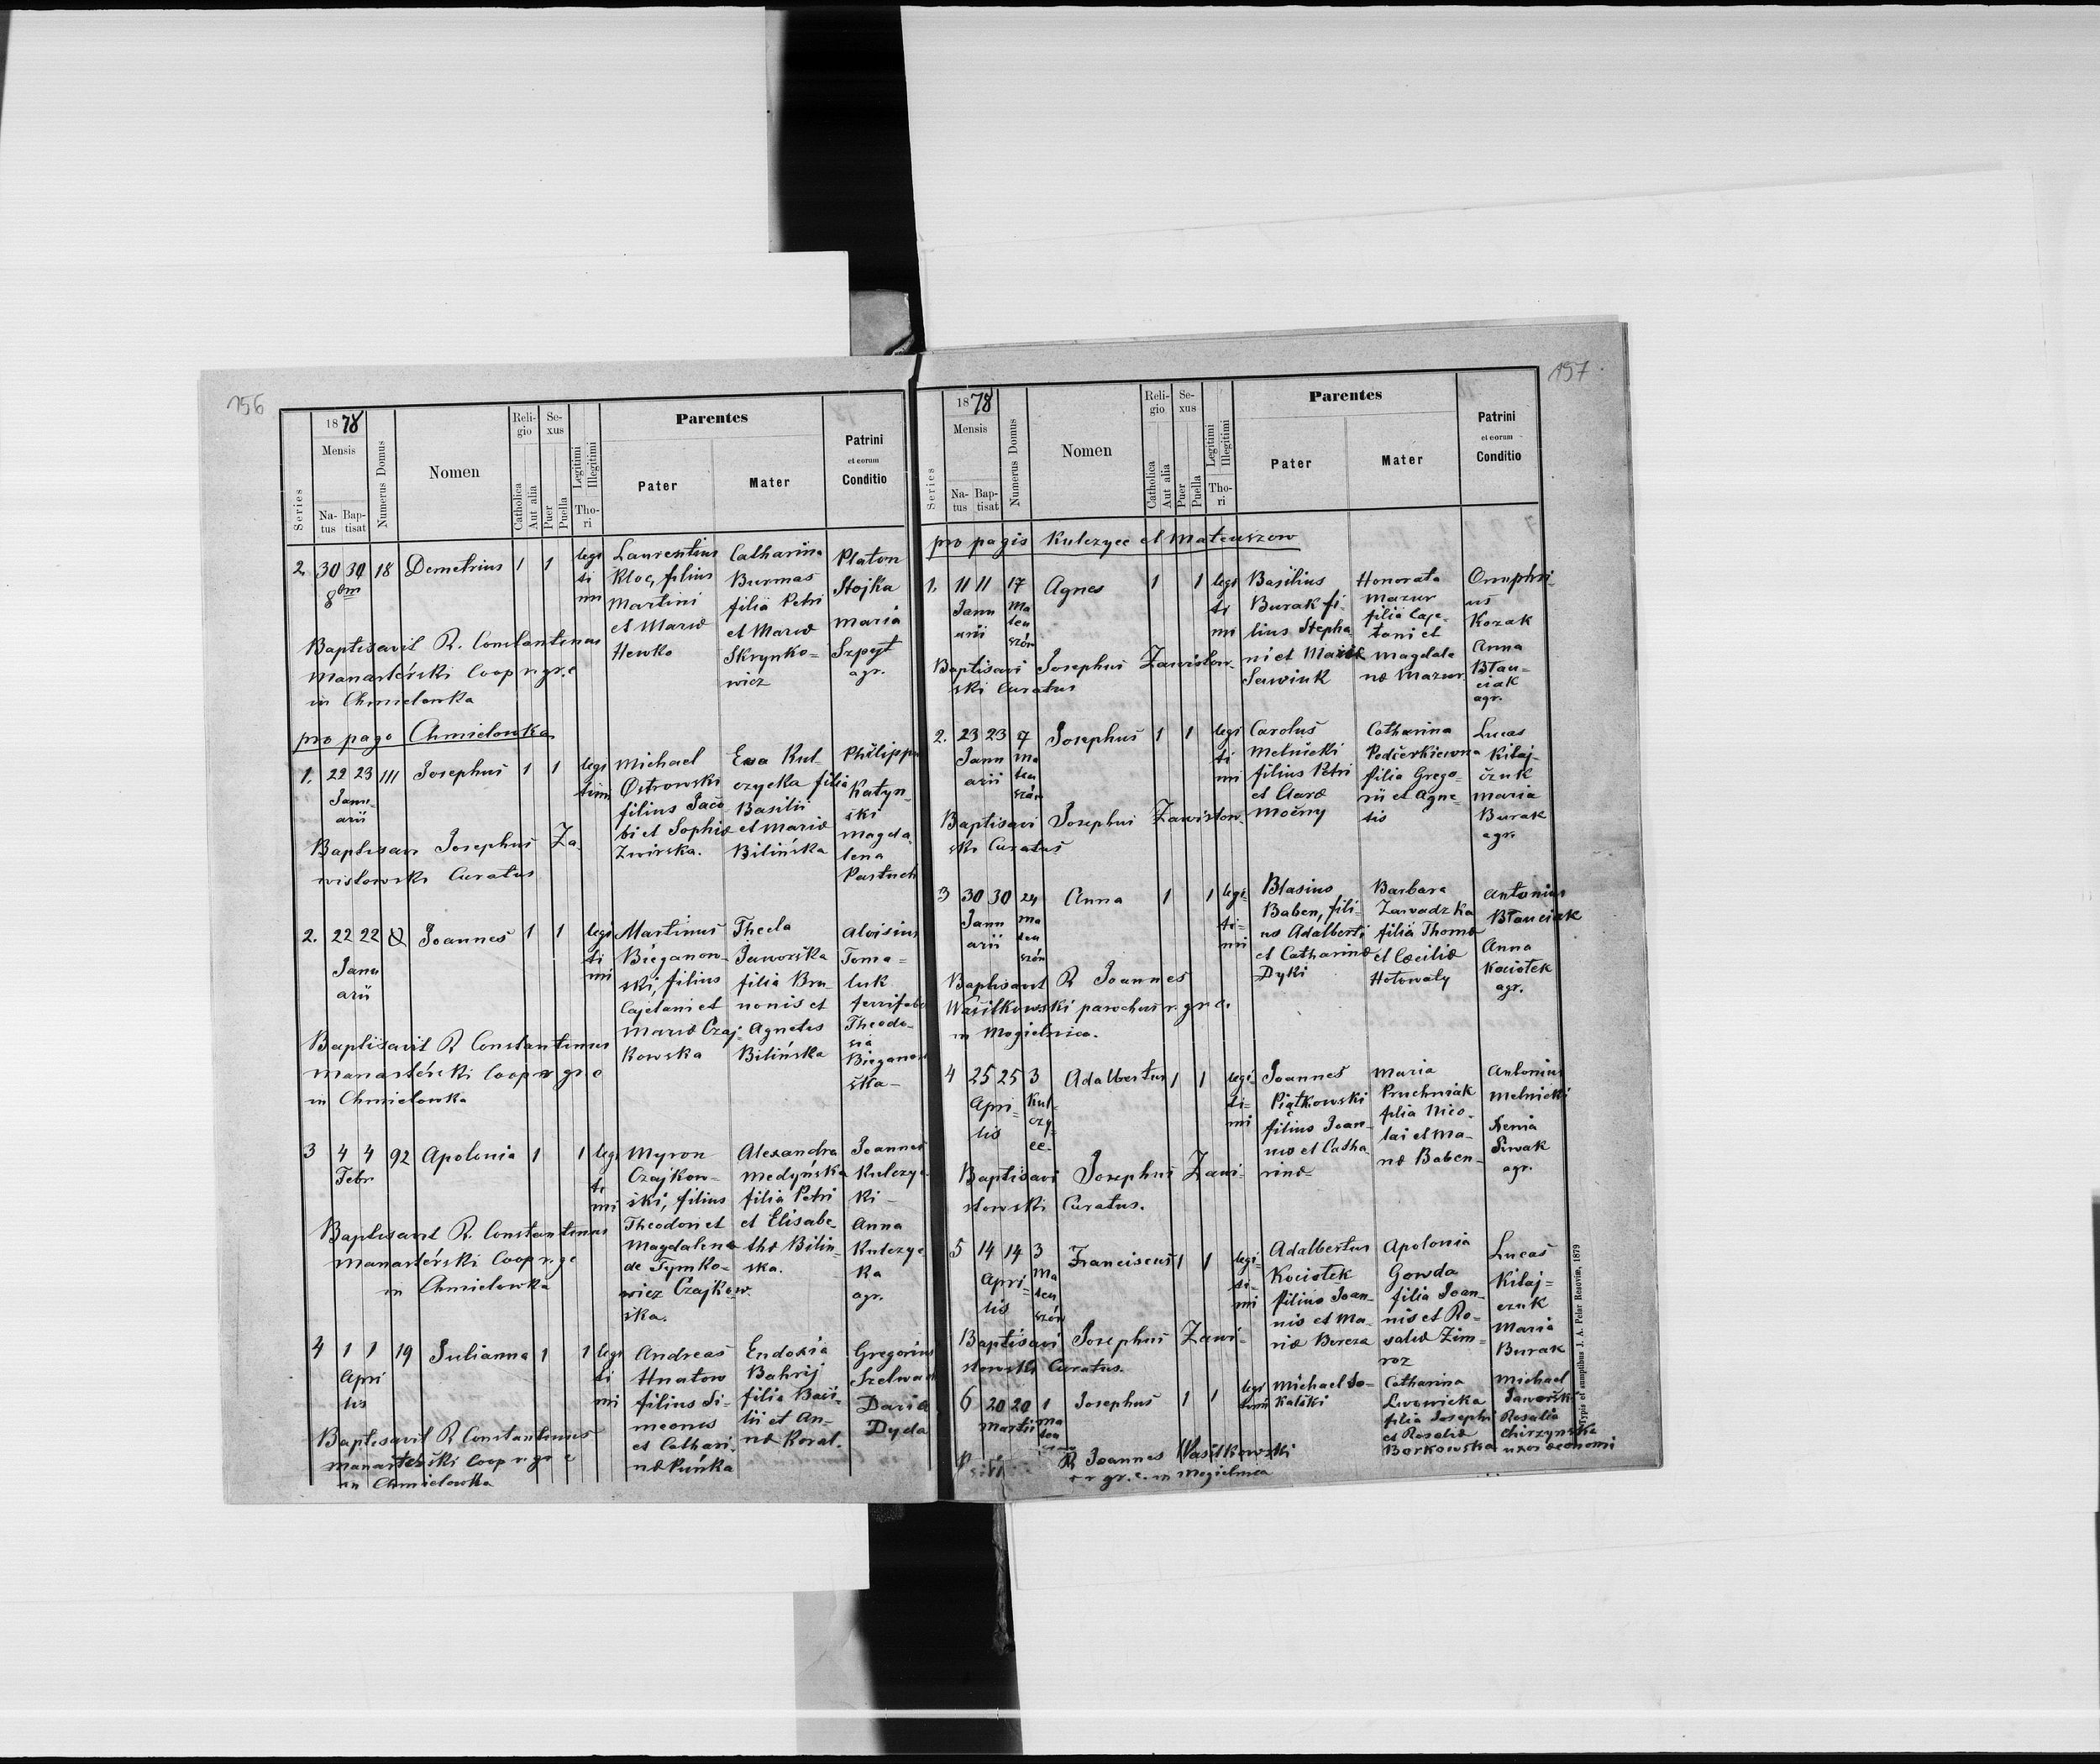 156
1878
Mensis
Series
Na-
tus
Bap-
tisat
Numerus Domus
Nomen
Reli-
gio
Catholica
Aut alia
Se-
xus
Puer
Puella
Legitimi
Illegitimi
Tho-
ri
Parentes
Pater
Mater
Patrini
et eorum
Conditio
2. 30 30 18 Demetrius 1 1
8bm
legi
ti
mi
Laurentius
Kloc, filius
Martini
et Mariæ
Hewko
Catharina
Burmas
filia Petri
et Mariæ
Skrynko-
wicz
Platon
Stojka
Maria
Szpejt
agr.
Baptisavit R. Constantinus
Manasterski Coop r. gr. c
in Chmielowka
pro pago Chmielowka
1. 22 23 111 Josephus 1 1
Janu-
arii
legi
timi
Michael
Ostrowski
filius Jaco
bi et Sophiæ
Zwirska.
Eva Kul-
czycka filia
Basilii
et Mariæ
Bilińska
Philippus
Katyn-
ski
Magda
lena
Pastuch
Baptisavi Josephus Za-
wistowski Curatus
2. 22 22 Joannes 1 1
Janu
arii
legi
ti
mi
Martinus
Bieganow-
ski, filius
Cajetani et
Mariæ Czaj-
kowska
Thecla
Jaworska
filia Bru-
nonis et
Agnetis
Bilińska
Aloisius
Toma-
luk
Theodo-
sia
ska-
Baptisavit R Constantinus
Manasterski Coop r gr c
in Chmielowka
3 4 4 92 Apolonia 1 1
Febr
legi
ti
mi
Myron
Czajkow-
ski, filius
Theodori et
Magdalena
de Tymko-
wicz Czajkow-
ska.
Alexandra
Medyńska
filia Petri
et Elisabe-
thæ Bilin-
ska.
Joannes
Kulczyc-
ki -
Anna
Kulczyc-
ka
agr.
Baptisavit R. Constantinus
Manasterski Coop r. g c
in Chmielowka
4 1 1 19 Julianna 1 1
Apri
lis
legi
ti
mi
Andreas
Hnatow
filius Si-
meonis
et Cathari-
næ Puńka
Eudoxia
Bahrij
filia Basi-
lii et An-
næ Koral.
Gregorius
Daria
Dyda
Baptisavit R Constantinus
Manasterski Coop r. gr c
in Chmielowka
157
1878
Mensis
Series
Na-
tus
Bap-
tisat
Numerus Domus
Nomen
Reli-
gio
Catholica
Aut alia
Se-
xus
Puer
Puella
Legitimi
Illegitimi
Tho-
ri
Parentes
Pater
Mater
Patrini
et eorum
Conditio
pro pagis Kulczyce et Mateuszow
1. 11 11 17 Agnes 1 1
Janu
arii
Ma
teu
szów
legi
ti
mi
Basilius
Burak fi-
lius Stepha
ni et Mariæ
Sawiuk
Honorata
Mazur
filia Caje-
tani et
Magdale
næ Mazur
Onuphri-
us
Kozak
Anna
Błau-
ciak
agr.
Baptisavi Josephus Zawistow-
ski Curatus
2. 23 23 7 Josephus 1 1
Janu
arii
Ma
teu
szów
legi
ti
mi
Carolus
Melnicki
filius Petri
et Claræ
Moćny
Catharina
filia Grego-
rii et Agne-
tis
Lucas
Kiłaj-
czuk
Maria
Burak
agr.
Baptisavi Josephus Zawistow-
ski Curatus
3 30 30 24 Anna 1 1
Janu
arii
ma
teu
szów
legi-
ti-
mi
Blasius
Baben, fili-
us Adalberti
et Catharinæ
Dyki
Barbara
Zawadzka
filia Thomæ
et Cæciliæ
Hołowaty
Antonius
Błauciak
Anna
Kociołek
agr.
Baptisavit R Joannes
Wasilkowski parochus r. gr c.
in Mogielnica.
4 25 25 3 Adalbertus 1 1
Apri-
lis
Kul-
czy-
ce
legi
ti-
mi
Joannes
Piątkowski
filius Joan-
nis et Catha
rinæ-
Maria
Pruchniak
filia Nico-
lai et Ma-
næ Baben-
Antonius
Melnicki
Xenia
Siwak
agr.
Baptisavi Josephus Zawi-
stowski Curatus.
5 14 14 3 Franciscus 1 1
Apri-
lis
Ma
teu
szów
legi-
ti-
mi
Adalbertus
Kociołek
filius Joan-
nis et Ma-
riæ Bereza
Apolonia
Gowda
filia Joan-
nis et Ro-
saliæ Zim-
roz
Lucas
Kiłaj-
czuk
Maria
Burak
Baptisavi Josephus Zawi-
stowski Curatus.
6 20 20 1 Josephus 1 1
Martii
Ma
teu
legi
timi
Michael So-
kalski
Catharina
Lwowicka
filia Josephi
et Rosaliæ
Borkowska
Michael
Jaworski
Rosalia
Chirzynska
uxor œconomi
R Joannes Wasilkowski
r gr. c. in Mogielnica
Typis et sumptibus J. A. Pelar Resoviæ, 1879